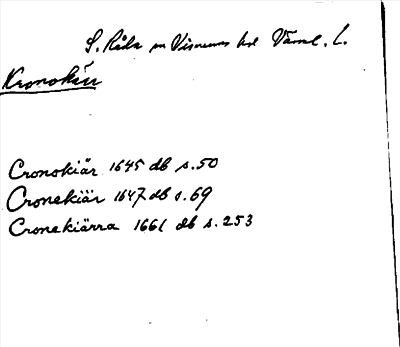 S. Råda sn Visnums hd Värml. l.
Kronokärr
Cronokiär 1645 db s.50
Cronekiär 1647 db s.69
Cronekiärra 1661 db s.253